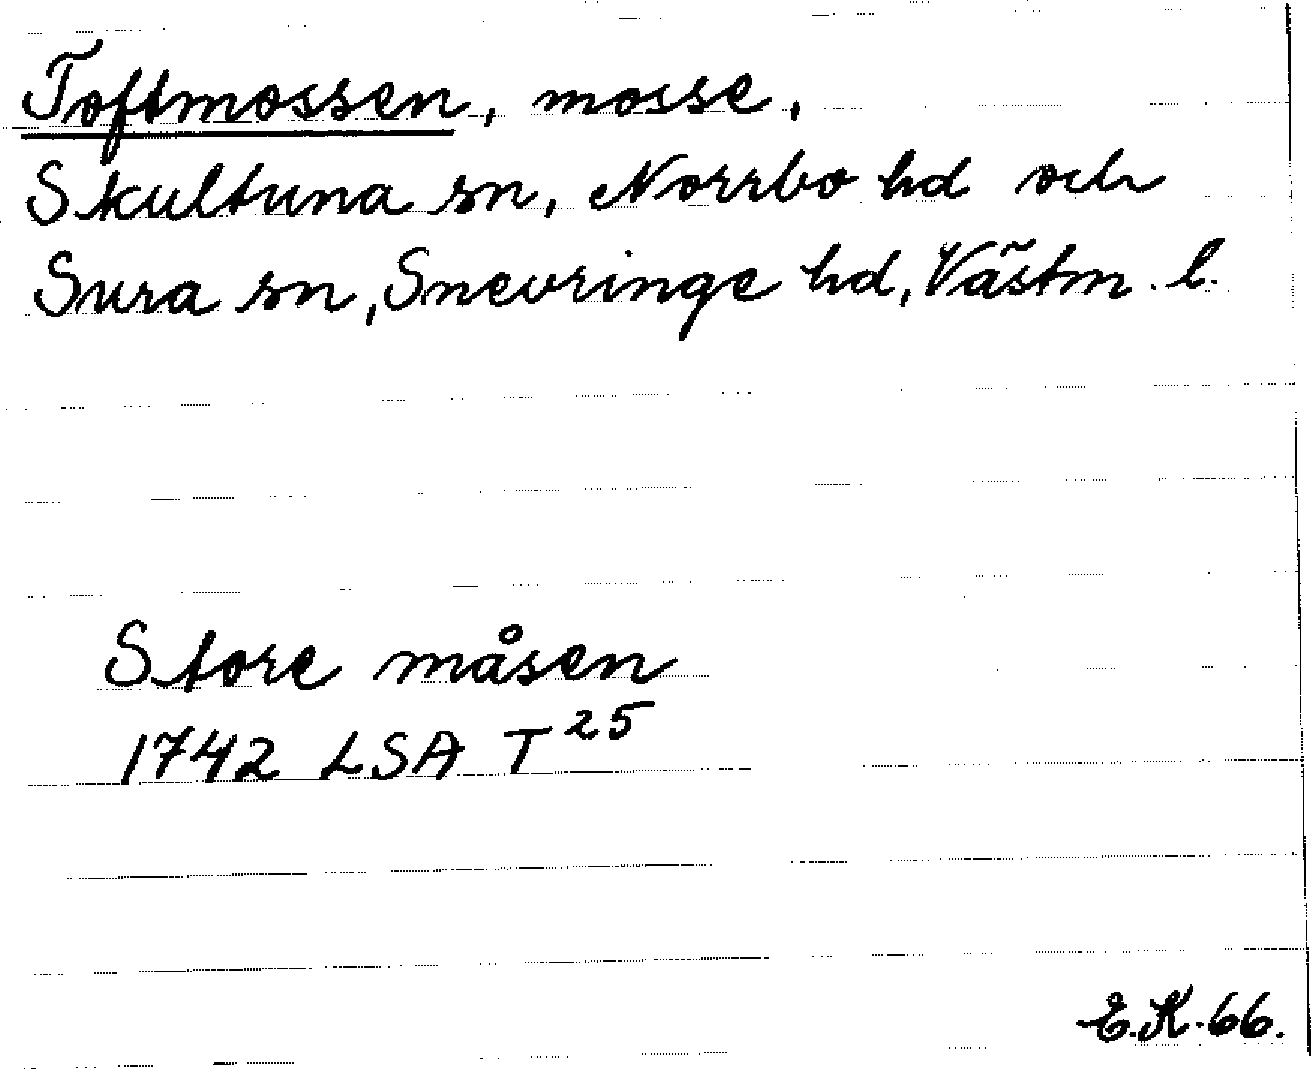 Toftmossen, mosse,
Skultuna sn, Norrbo hd och
Sura sn, Snevringe hd, Västm. l.
Store måsen
1742 LSA T 25
E.K. 66.